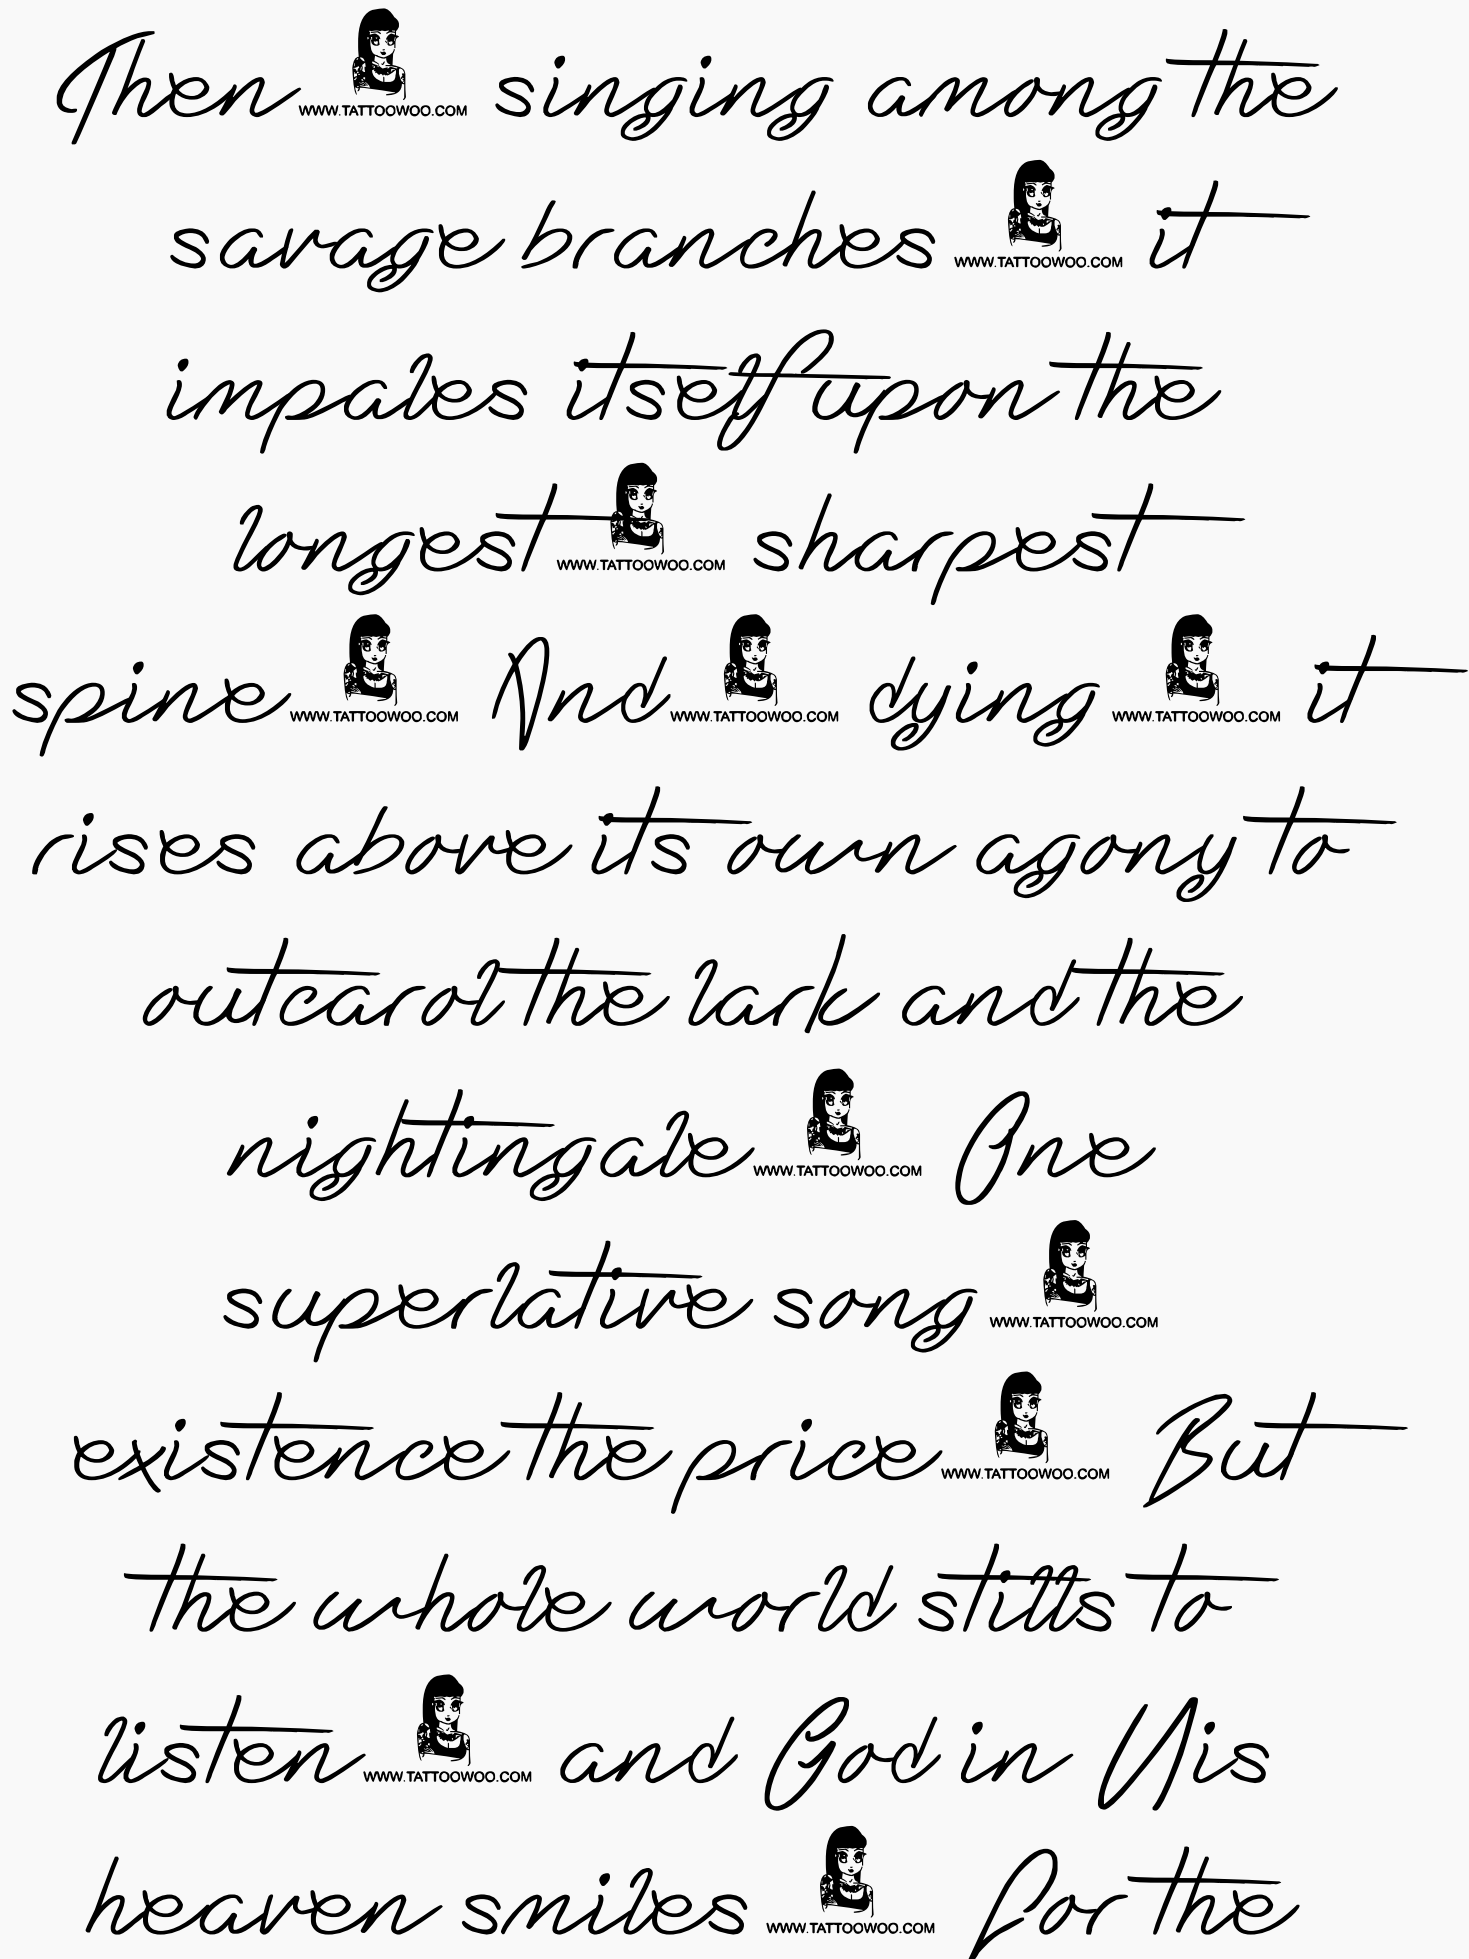 Then WWW.TATTOOWOO.COM singing among the
savage branches WWW.TATTOOWOO.COM it
impales itself upon the
longest WWW.TATTOOWOO.COM sharpest
spine WWW.TATTOOWOO.COM And WWW.TATTOOWOO.COM dying WWW.TATTOOWOO.COM it
rises above its own agony to
outcarol the lark and the
nightingale WWW.TATTOOWOO.COM One
superlative song WWW.TATTOOWOO.COM
existence the price WWW.TATTOOWOO.COM But
the whole world stills to
listen WWW.TATTOOWOO.COM and God in His
heaven smiles WWW.TATTOOWOO.COM For the